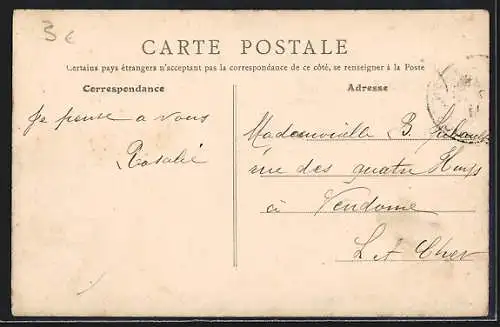 3€
CARTE POSTALE
Certains pays étrangers n'acceptant pas la correspondance de ce côté, se renseigner à la Poste
Correspondance
Adresse
Je pense a vous
Rosalie
Mademoiselle B.
rue des quatre Huyes
à Vendome
L et Cher